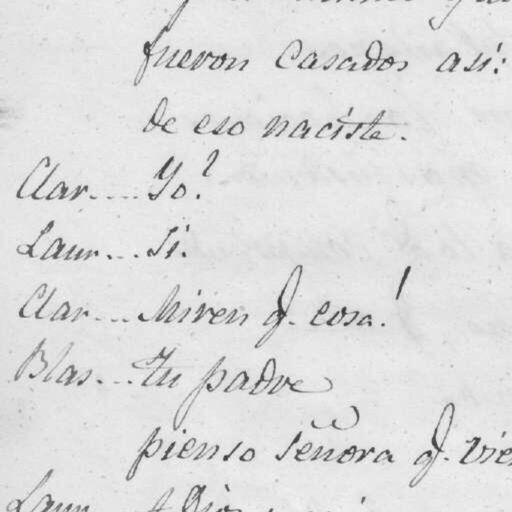 fueron Casados asi:
de eso naciste.
Clar.... Yo?
Laur... Si.
Clar.... Miren q. cosa!
Blas... Tu padre
pienso señora q. vien
Laur A Dios